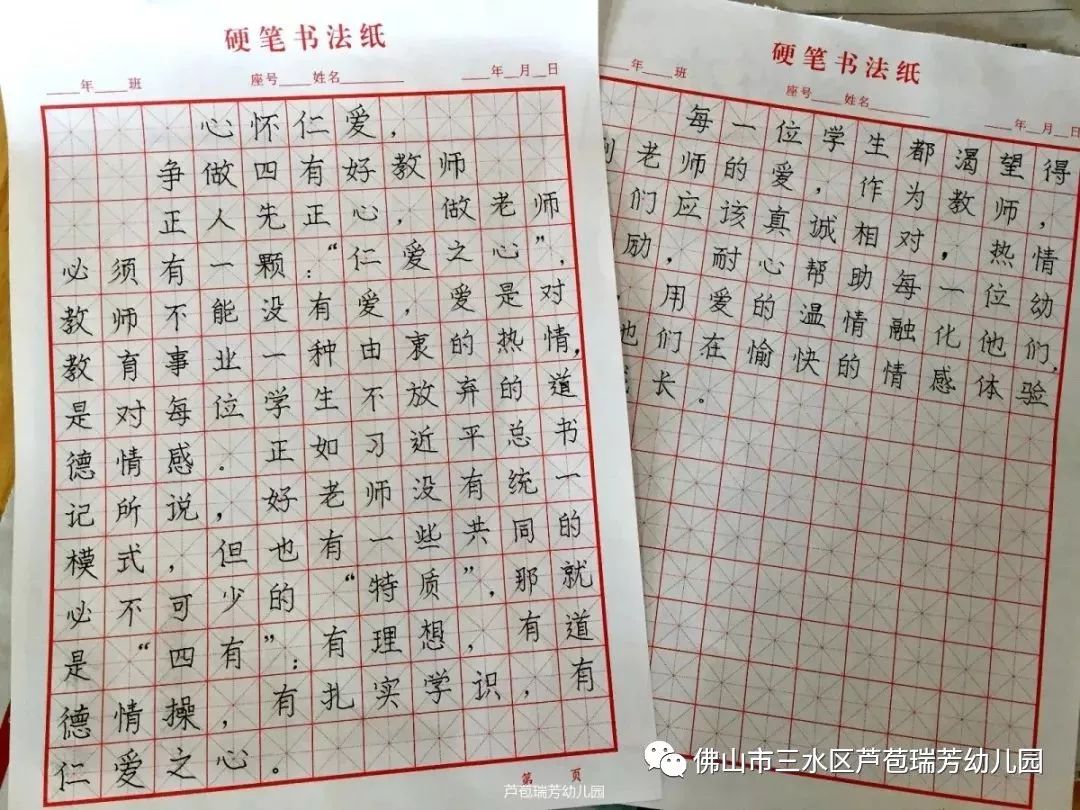 硬笔书法纸
____年____班 座号____姓名________ ____年__月__日
心怀仁爱，
争做四有好教师
正人先正心，做老师
必须有一颗：“仁爱之心”，
教师不能没有爱，爱是对
教育事业一种由衷的热情，
是对每位学生不放弃的道
德情感。正如习近平总书
记所说，好老师没有统一
模式，但也有一些共同的
必不可少的“特质”，那就
是“四有”：有理想，有道
德情操，有扎实学识，有
仁爱之心。
第 页
芦苞瑞芳幼儿园
硬笔书法纸
年____班 座号____姓名________ ____年__月__日
每一位学生都渴望得
老师的爱，作为教师，
们应该真诚相对，热情
励，耐心帮助每一位幼
，用爱的温情融化他们，
他们在愉快的情感体验
长。
佛山市三水区芦苞瑞芳幼儿园